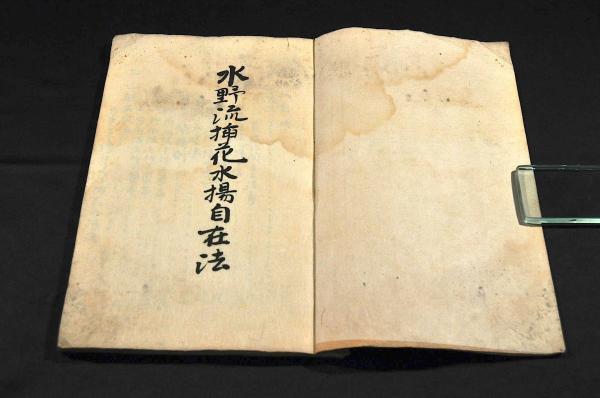 水野流挿花水揚自在法